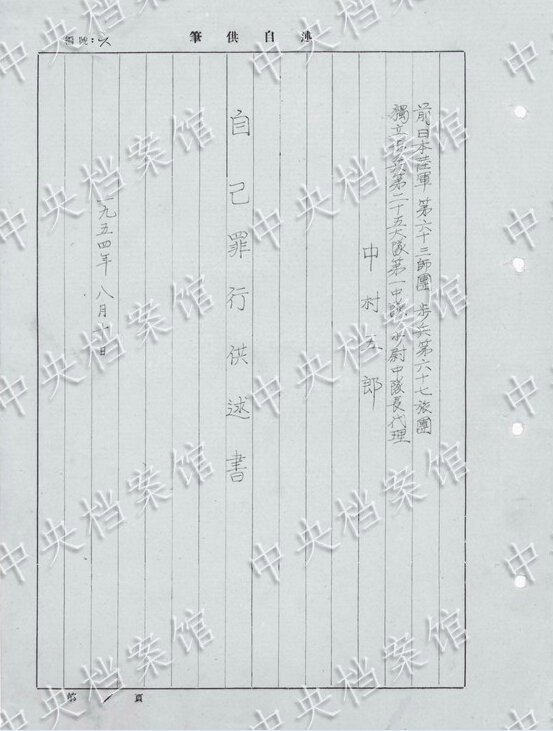 筆供自述
編號:
前日本陸軍 第六十三師團 步兵第六十七旅團
獨立步兵第二十五大隊第一中隊 少尉中隊長代理
中村五郎
自己罪行供述書
一九五四年 八月 日
第 頁
中央档案馆